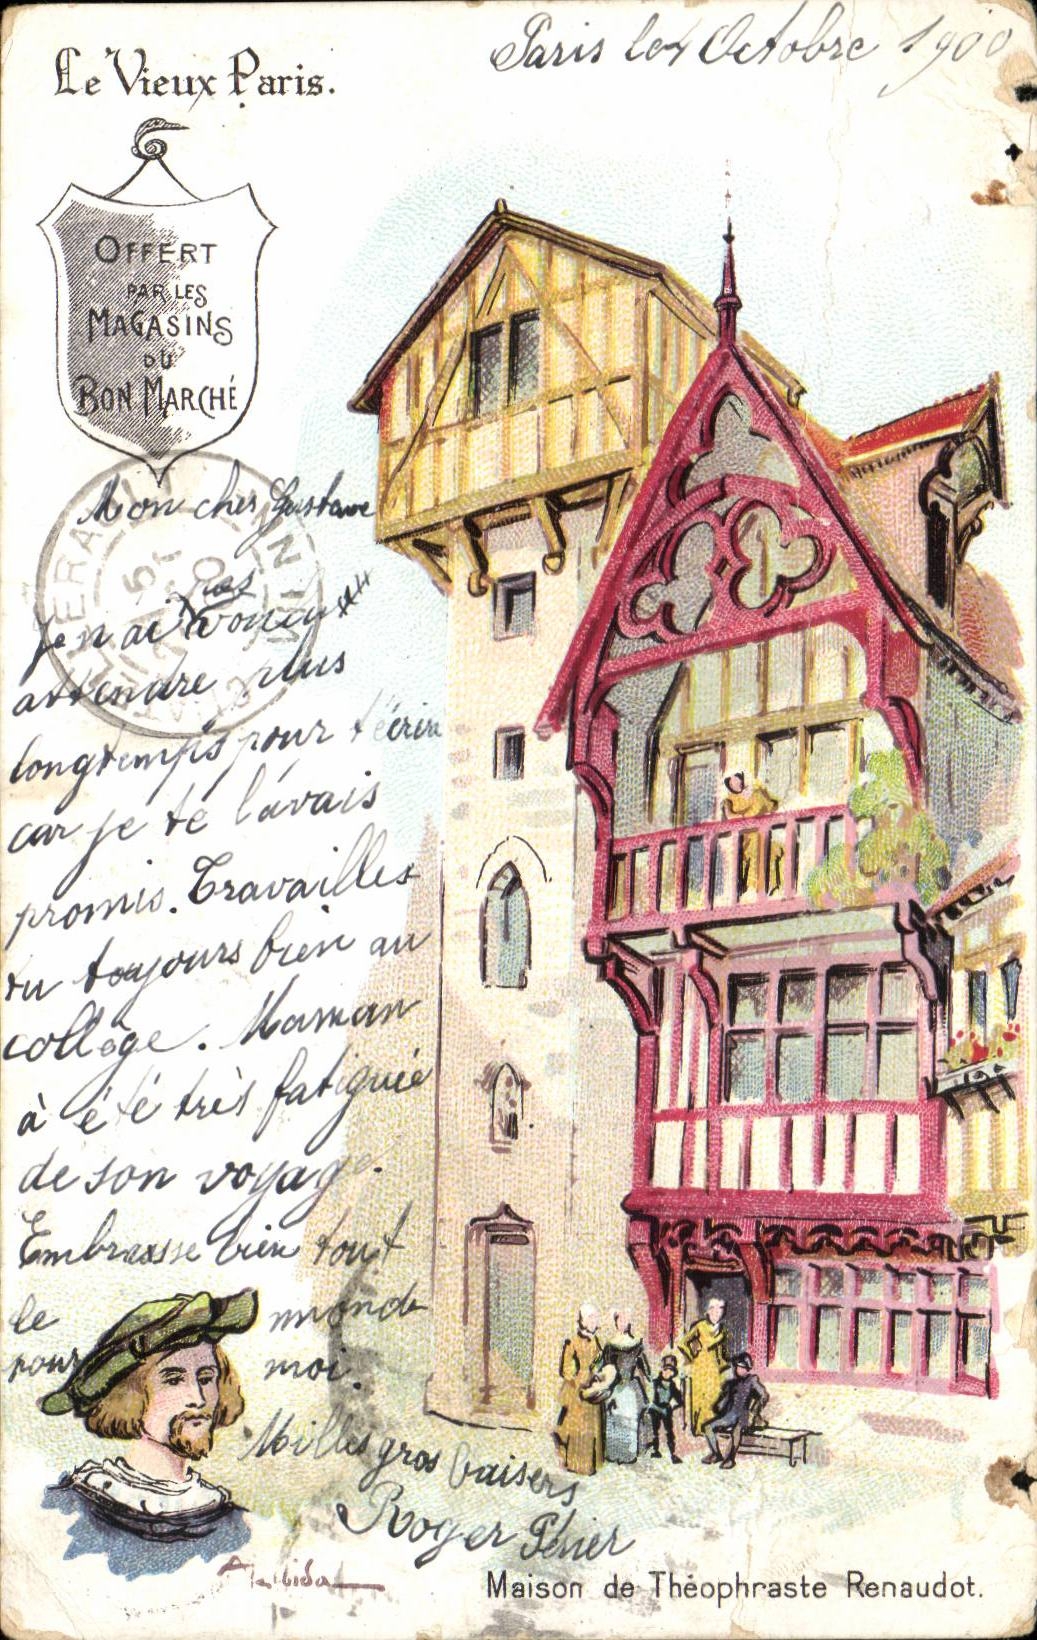 Paris le 4 Octobre 1900
Le Vieux Paris.
OFFERT
PAR LES
MAGASINS
DU
BON MARCHÉ
Mon cher Gustave
Je n'ai pas voulu
attendre plus
longtemps pour t'écrire
car je te l'avais
promis. Travailles
tu toujours bien au
collège. Maman
à été très fatiguée
de son voyage.
Embrasse bien tout
le monde
pour moi.
Milles gros baisers
Roger
A. Robida
Maison de Théophraste Renaudot.